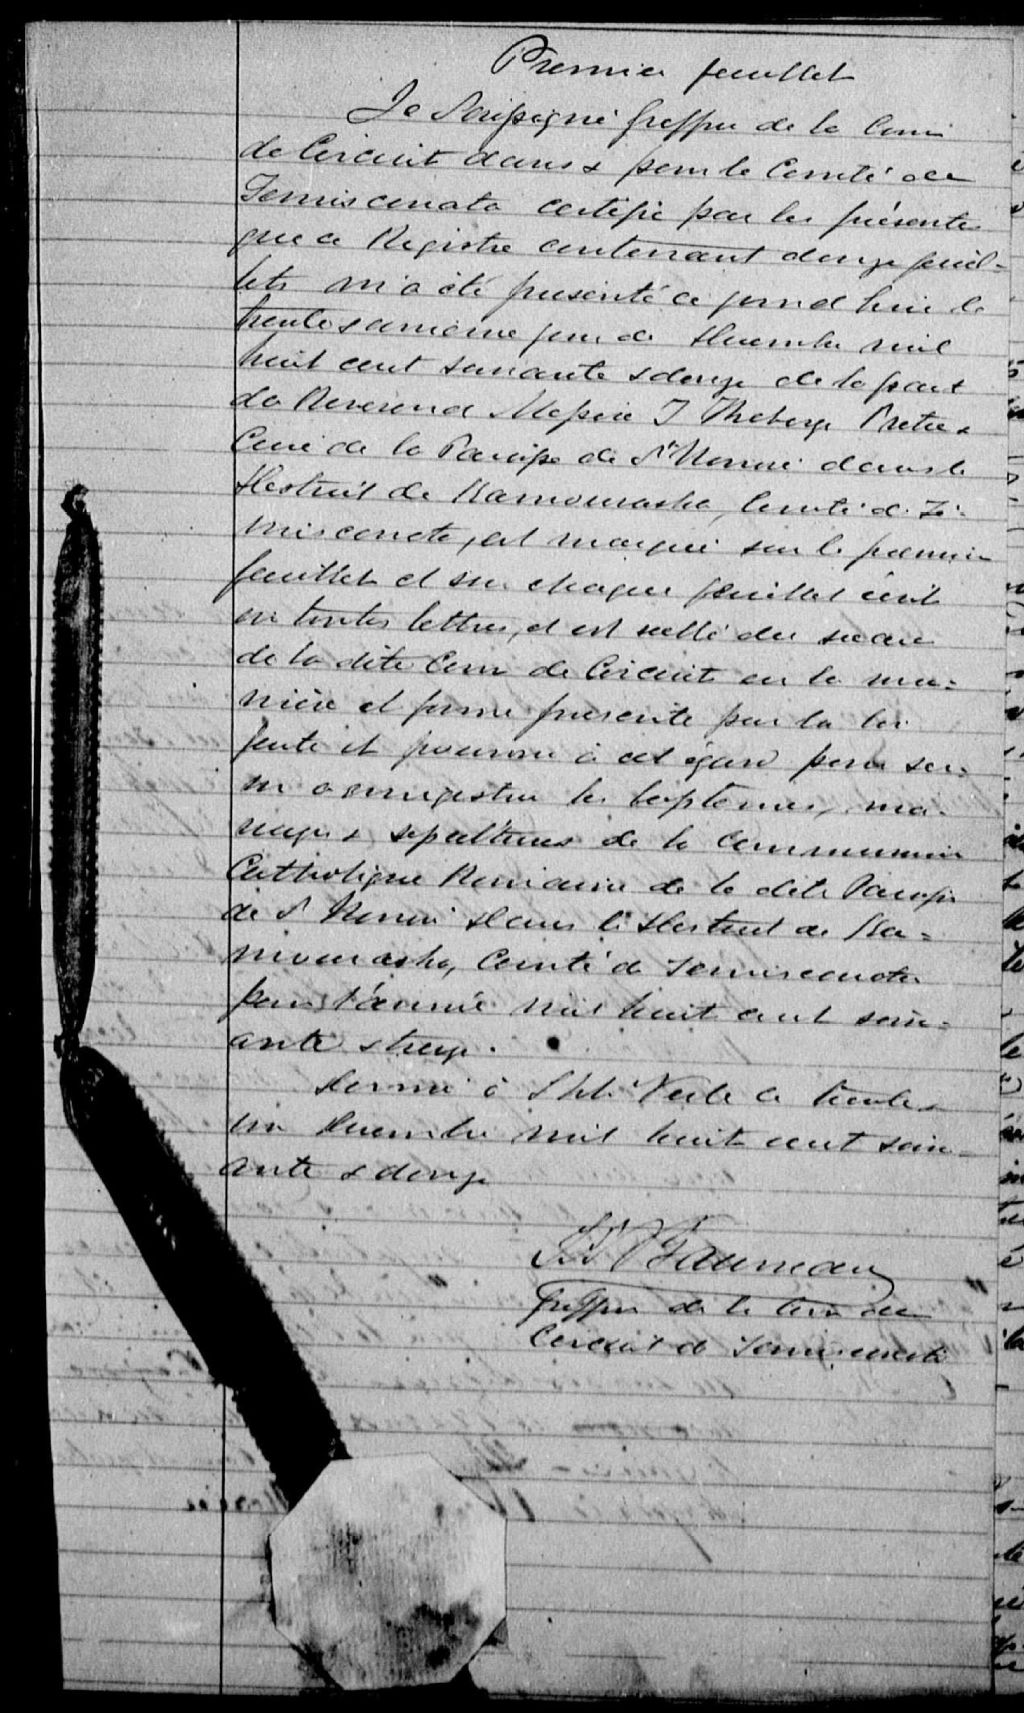 Premier feuillet
Je Soussigné Greffier de la Cour
de Circuit dans & pour le Comté de
Temiscouata certifie par les présentes
que ce Registre contenant douze feuil-
lets m'a été présenté ce jourd'hui le
trente & unieme jour de Decembre mil
huit cent soixante & douze de la part
du Reverend Messire J Theberge Pretre &
Curé de la Paroisse de St dans le
District de Kamouraska, Comté de Te-
miscouata, est marqué sur le premier
feuillet et sur chaque feuillet écrit
en toutes lettres, et est scellé du sceau
de la dite Cour de Circuit en la ma-
nière et forme prescrite par la loi
faite et pourvue à cet égard pour ser-
vir a enregistrer les baptemes, ma-
riages & sepultures de la Communion
Catholique Romaine de la dite Paroisse
de St dans le District de Ka-
mouraska, Comté de Temiscouata
pour l'année mil huit cent soix-
ante & treize.
Donné à l'Isle Verte le trente &
un Decembre mil huit cent soix-
ante & douze
Greffier de la Cour de
Circuit de Temiscouata